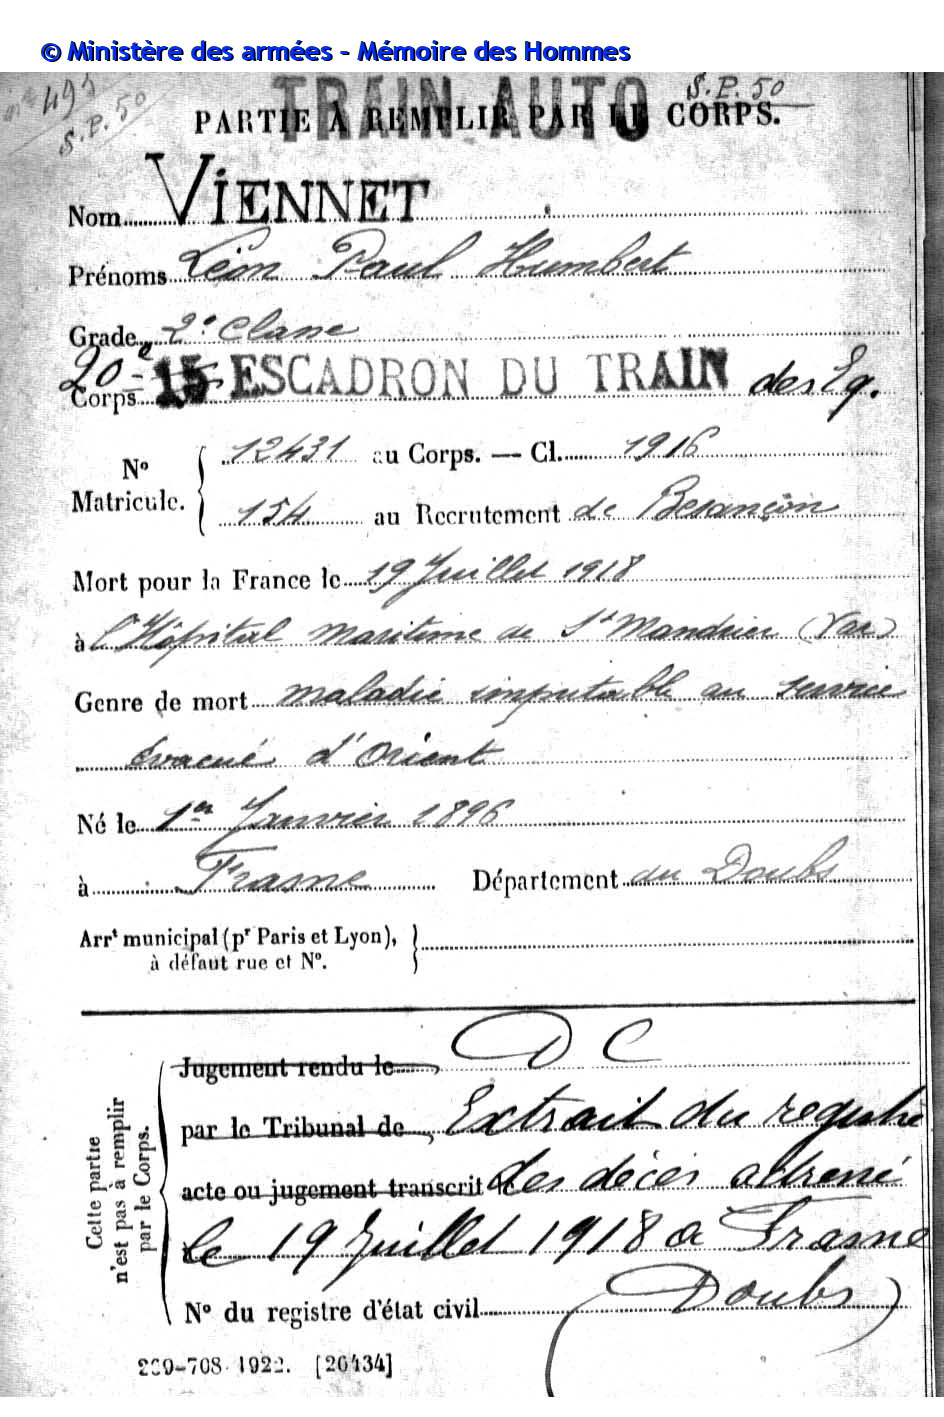 © Ministère des armées - Mémoire des Hommes
n° 493
S.P. 50
TRAIN AUTO
S.P. 50
PARTIE À REMPLIR PAR LE CORPS.
Nom VIENNET
Prénoms Léon Paul Humbert
Grade 2e Classe
20e
Corps 15 ESCADRON DU TRAIN des Eq.
N° Matricule.
12431 au Corps. — Cl. 1916
154 au Recrutement de Besançon
Mort pour la France le 19 Juillet 1918
à l'Hôpital maritime de St Mandrier (Var)
Genre de mort maladie imputable au service
évacué d'Orient
Né le 1er Janvier 1896
à Frasne Département du Doubs
Arrt municipal (pr Paris et Lyon),
à défaut rue et N°.
Cette partie
n'est pas à remplir
par le Corps.
Jugement rendu le D C
par le Tribunal de Extrait du registre
acte ou jugement transcrit le des décès adressé
le 19 Juillet 1918 à Frasne
N° du registre d'état civil (Doubs)
269-708. 1922. [26434]